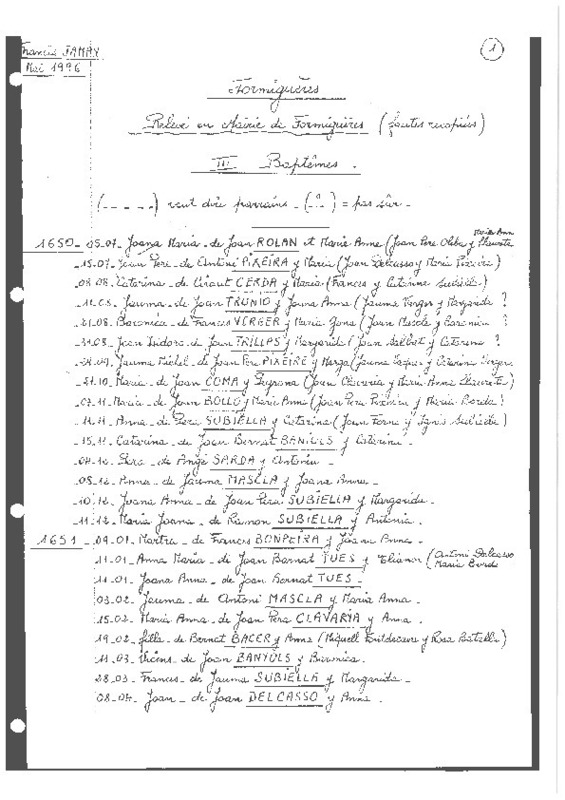 Francis JAMAY
Mai 1996
1
Formiguères
Relevé en Mairie de Formiguères (fautes recopiées)
III Baptêmes.
(_ _ _ _) veut dire parrains - (?) = pas sûr -
1650 - 05-07- Joana Maria - de Joan ROLAN et Maria Anne (Joan Pere Oliba y
- 15-07- Joan Pere - de Antoni PIXEIRA y Maria (Joan Delcasso y Maria Pixeira)
- 08-08- Catarina - de Giraut CERDA y Maria (Francis y Catarina Subiela)
- Jauma - de Joan TRUNIO y Joana Anna (Jauma Verges y Margarida ?
- 21-08- de Francis VERGER y Maria Joana (Joan Mascla y ?
- 31-08- Joan Isidore de Joan TRILLAS y Margarida (Joan y Catarina ?
Jauma Michel - de Joan Pere PIXEIRE y (Jauma y Catarina Verger
- 31-10- Maria - de Joan COMA y (Joan y Maria Anna
- 07-11- Maria - de Joan BOLLO y Maria Anna (Joan Pere Pixeira y Maria ?
- 11-11- Anna - de Pera SUBIELLA y Catarina (Joan y Subiela)
- 15-11- Catarina - de Joan Bernat BANIULS y Catarina -
- 04-12- Pera - de Ange SARDA y
- 05-12- Anna - de Jauma MASCLA y Joana Anna -
- 10-12- Joana Anna - de Joan Pera SUBIELLA y Margarida -
- 11-12- Maria Joana - de Ramon SUBIELLA y Antonia.
1651 - 09-01- Martra - de Francis BONPEIRA y Joana Anna -
11-01- Anna Maria - de Joan Bernat TUES y Elianor (Antoni Delcasso
Maria
11-01- Joana Anna - de Joan Bernat TUES -
03-02- Jauma - de Antoni MASCLA y Maria Anna -
15-02- Maria Anna - de Joan Pera CLAVARIA y Anna.
19-02- filla - de Bernat BACER y Anna (Miquell y Rosa
11-03- Vicens - de Joan BANYULS y
28-03- Francis - de Jauma SUBIELLA y Margarida -
08-04- Joan - de Joan DELCASSO y Anna.